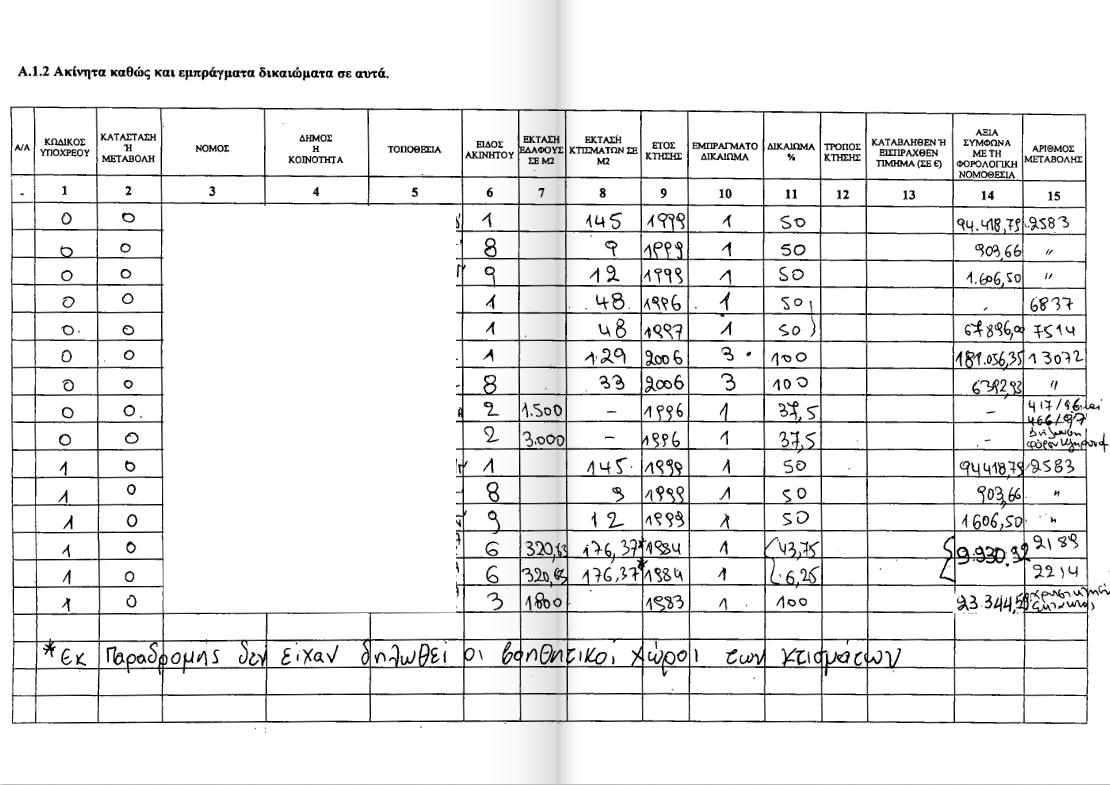 Α.1.2 Ακίνητα καθώς και εμπράγματα δικαιώματα σε αυτά.
Α/Α ΚΩΔΙΚΟΣ ΥΠΟΧΡΕΟΥ ΚΑΤΑΣΤΑΣΗ Ή ΜΕΤΑΒΟΛΗ ΝΟΜΟΣ ΔΗΜΟΣ Η ΚΟΙΝΟΤΗΤΑ ΤΟΠΟΘΕΣΙΑ ΕΙΔΟΣ ΑΚΙΝΗΤΟΥ ΕΚΤΑΣΗ ΕΔΑΦΟΥΣ ΣΕ Μ2 ΕΚΤΑΣΗ ΚΤΙΣΜΑΤΩΝ ΣΕ Μ2 ΕΤΟΣ ΚΤΗΣΗΣ ΕΜΠΡΑΓΜΑΤΟ ΔΙΚΑΙΩΜΑ ΔΙΚΑΙΩΜΑ % ΤΡΟΠΟΣ ΚΤΗΣΗΣ ΚΑΤΑΒΛΗΘΕΝ Ή ΕΙΣΠΡΑΧΘΕΝ ΤΙΜΗΜΑ (ΣΕ €) ΑΞΙΑ ΣΥΜΦΩΝΑ ΜΕ ΤΗ ΦΟΡΟΛΟΓΙΚΗ ΝΟΜΟΘΕΣΙΑ ΑΡΙΘΜΟΣ ΜΕΤΑΒΟΛΗΣ
- 1 2 3 4 5 6 7 8 9 10 11 12 13 14 15
0 0 1 145 1999 1 50 94.418,79 2583
0 0 8 9 1999 1 50 903,66 "
0 0 9 12 1999 1 50 1.606,50 "
0 0 1 48 1996 1 50 6837
0 0 1 48 1997 1 50 7514
0 0 1 129 2006 3 100 181.056,35 13072
0 0 8 33 2006 3 100 6392,93 "
0 0 2 1.500 - 1996 1 37,5 - 417/96 και 466/97
0 0 2 3.000 - 1996 1 37,5 - Δήλωση
1 0 1 145 1999 1 50 94418,79 2583
1 0 8 9 1999 1 50 903,66 "
1 0 9 12 1999 1 50 1606,50 "
1 0 6 320,63 176,37* 1984 1 43,75 9.930,92 2189
1 0 6 320,63 176,37* 1984 1 6,25 2214
1 0 3 1800 1983 1 100
*Εκ Παραδρομής δεν είχαν δηλωθεί οι βοηθητικοί χώροι των κτισμάτων